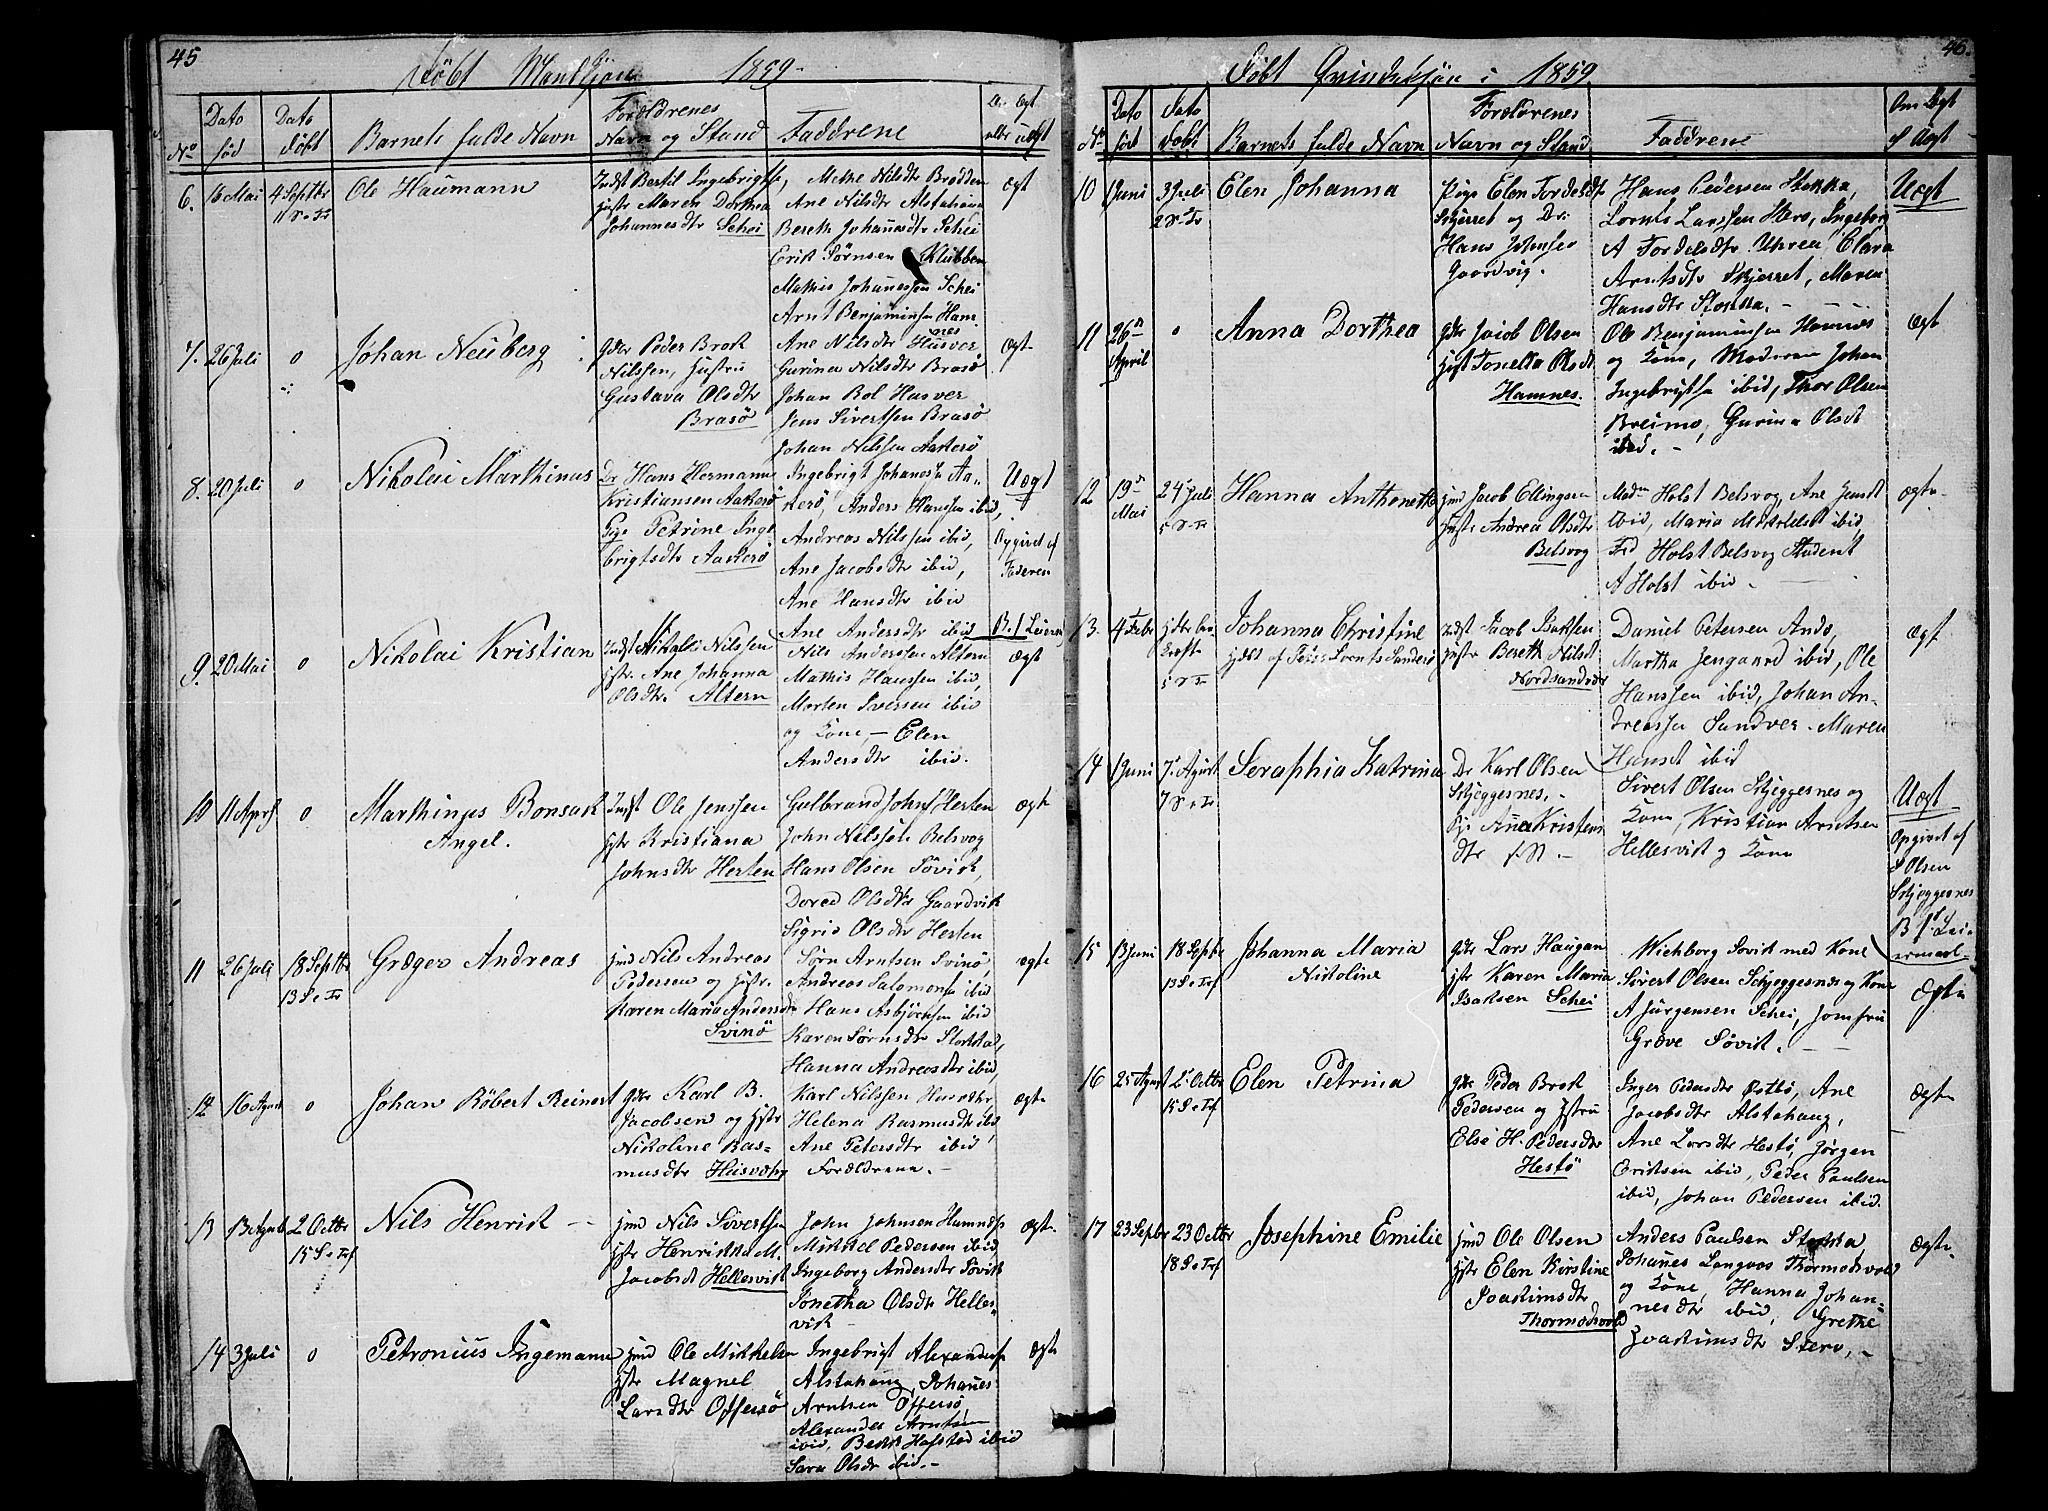 45
Døbt Mankjøn 1859.
No
Dato
fød
Dato
Døbt
Barnets fulde Navn
Forældrenes
Navn og Stand
Faddrene
6. 16 Mai 4 Septbr
Ole Haumann
Indst Bertil Ingebrigts,
hstr Maren Dorthea
Johannesdtr Schei
Methe Nilsdtr Brodden
Ane Nilsdtr Alstahaug
Bereth Johannesdtr Schei
Erik Sørnsen Klubben
Mathis Johanessen Schei
Arnt Benjaminsen Ham-
nes
Ægt
7. 26 Juli o
Johan Neuberg
Gdbr Peder Brok
Nilssen, Hustru
Gustava Olsdtr
Brasø
Ane Nilsdtr Husver
Gurina Nilsdtr Brasø
Johan Rol Husver
Jens Sivertsen Brasø
Johan Nilssen Aakerø
Ægt
8. 20 Juli o
Nikolai Marthinus
Dr Hans Hermann
Kristiansen Aakerø
Pige Petrine Inge-
brigtsdtr Aakerø
Ingebrigt Johanessen Aa-
kerø, Anders Hanssen ibid,
Andreas Nilssen ibid,
Ane Jacobsdtr ibid,
Ane Hansdtr ibid
Ane Andersdtr ibid
Uægt
Opgivet af
Faderen
9. 20 Mai o
Nikolai Kristian
Indst Nikolai Nilssen
hstr. Ane Johanna
Olsdtr. Altern
Nils Anderssen Altern
Mathis Hanssen ibid,
Morten Iversen ibid
og Kone, – Elen
Andersdtr ibid.
Ægt
10 11 April o
Marthinus Bonsak
Angel.
Indst Ole Jenssen
hstr Kristiana
Johnsdtr Herten
Gulbrand Johns Herten
John Nilssøn Belsvog
Hans Olsen Søvik,
Dored Olsdtr Gaardvik
Sigrid Olsdtr Herten
Ægte
11 26 Juli 18 Septbr
13 S. e Tr
Græger Andreas
Nils Andreas
Pedersen og hstr.
Karen Maria Andersdtr
Svinø
Sørn Arntsen Svinø,
Andreas Salomons ibid
Hans Asbjørnsen ibid
Karen Sørnsdtr Stokka,
Hanna Andreasdtr ibid,
ægte
12 16 August o
Johan Røbert Reinert
Gdbr Karl B.
Jacobsen og hstr
Nikoline Ras-
musdtr Husvær
Karl Nilssen Husvær
Helena Rasmusdtr ibid,
Ane Petersdtr ibid
Forældrene. –
Ægte
13 2 Octbr
15 S. e Trf
Nils Henrik –
Nils Sivertsen
hstr Henrikka M.
Jacobsd Hellesvik
John Johnsen Hamnes
Mikkel Pedersen ibid
Ingeborg Andersdtr Søvik
Jonetha Olsdtr Helles-
vik –
ægte
14 3 Juli o
Petronius Ingemann
Ole Mikkelsen
hstr Magnel
Larsdtr Offersø
Ingebrigt Alexanders
Alstahaug, Johanes
Arntsen Offersø,
Alexander Arntsen
ibid, Hofstad ibid
Sara Olsdtr ibid. –
Ægte
46.
Døbt Qvindekjøn i 1859
No
Dato
født
Dato
Døbt
Barnets fulde Navn
Forældrenes
Navn og Stand
Faddrene
Om Ægt
Uægt
10 1 Juni 3 Juli
2 S. e Tr
Elen Johanna
Pige Elen Tordelsdtr
Skjerret og Dr:
Hans Johnsen
Gaardvig.
Hans Pedersen Stokka,
Lornts Larssen Stero, Ingeborg
A Tordelsdtr Uhrea, Clara
Arntsdtr Skjerret, Maren
Hansdtr Stokka. –
Uægt
11 26de
April o
Anna Dorthea
Gdbr Jacob Olsen
hstr Tonetta Olsdt
Hamnes.
Ole Benjaminsen Hamnes
og Kone, Madamm Johan
Ingebrigtsen ibid, Thor Olsen
Breimo, Gurina Olsdt
ibid. –
Ægt
12 19de
Mai 24 Juli
5 S. e Tr
Hanna Anthonette
Jacob Ellingsen
hstr Andrea Olsdtr
Belsvog
Madm Holst Belsvog, Ane Jensdt
ibid, Maria ibid,
Holst Belsvog Student
A Holst ibid –
Ægte
13. 4 Febr
Johanna Christine
hjdbt af Peter Lornts Sandvær
Indst Jacob Isaksen
hstr Bereth Nilsdt
Nordsandvær
Daniel Petersen Andø,
Martha Jengaard ibid, Ole
Hanssen ibid, Johan An-
dreassen Sandver. Maren
Hansdt ibid
Ægt
14 1 Juni 7 August
7 S. e Tr
Seraphia Katrina
Dr Karl Olsen
Skjeggesnes. –
Pige Ane Kristens
dtr –
Sivert Olsen Skjeggesnes og
Kone, Kristian Arntsen
Hellesvik og Kone
Uægt
Opgivet af
S Olsen
Skjeggesnes
15 13 Juni 18 Septbr
13 S. e Trf
Johanna Maria
Nikoline
Gdbr Lars Haugan
hstr Karen Maria
Isaksen Schei
Wichborg Søvik med Kone
Sivert Olsen Skjeggesnes og Kone
A Jürgensen Schei, Jomfru
Græve Søvik. –
Ægte
16 25 August 2 Octbr
15 S. e Trf
Elen Petrina
Gdbr Peder Brok
Pedersen og Hstru
Else H. Pedersdtr
Hestø
Inger Pedersdtr Østbø, Ane
Jacobsdtr Alstahaug,
Ane Larsdtr Hestø, Jørgen
Eriksen ibid, Peder Paulsen
ibid, Johan Pedersen ibid.
Ægte
17 23 Septbr 23 Octbr
18 S. e Trf
Josephine Emilie
Ole Olsen
hstr Elen Kirstine
Joakimsdtr
Thormodsvold
Anders Paulsen Stokka,
Johanes Langaas Thormodsvold
og Kone, Hanna Johan-
nesdtr ibid, Grethe
Joakimsdtr Stero, –
Ægte